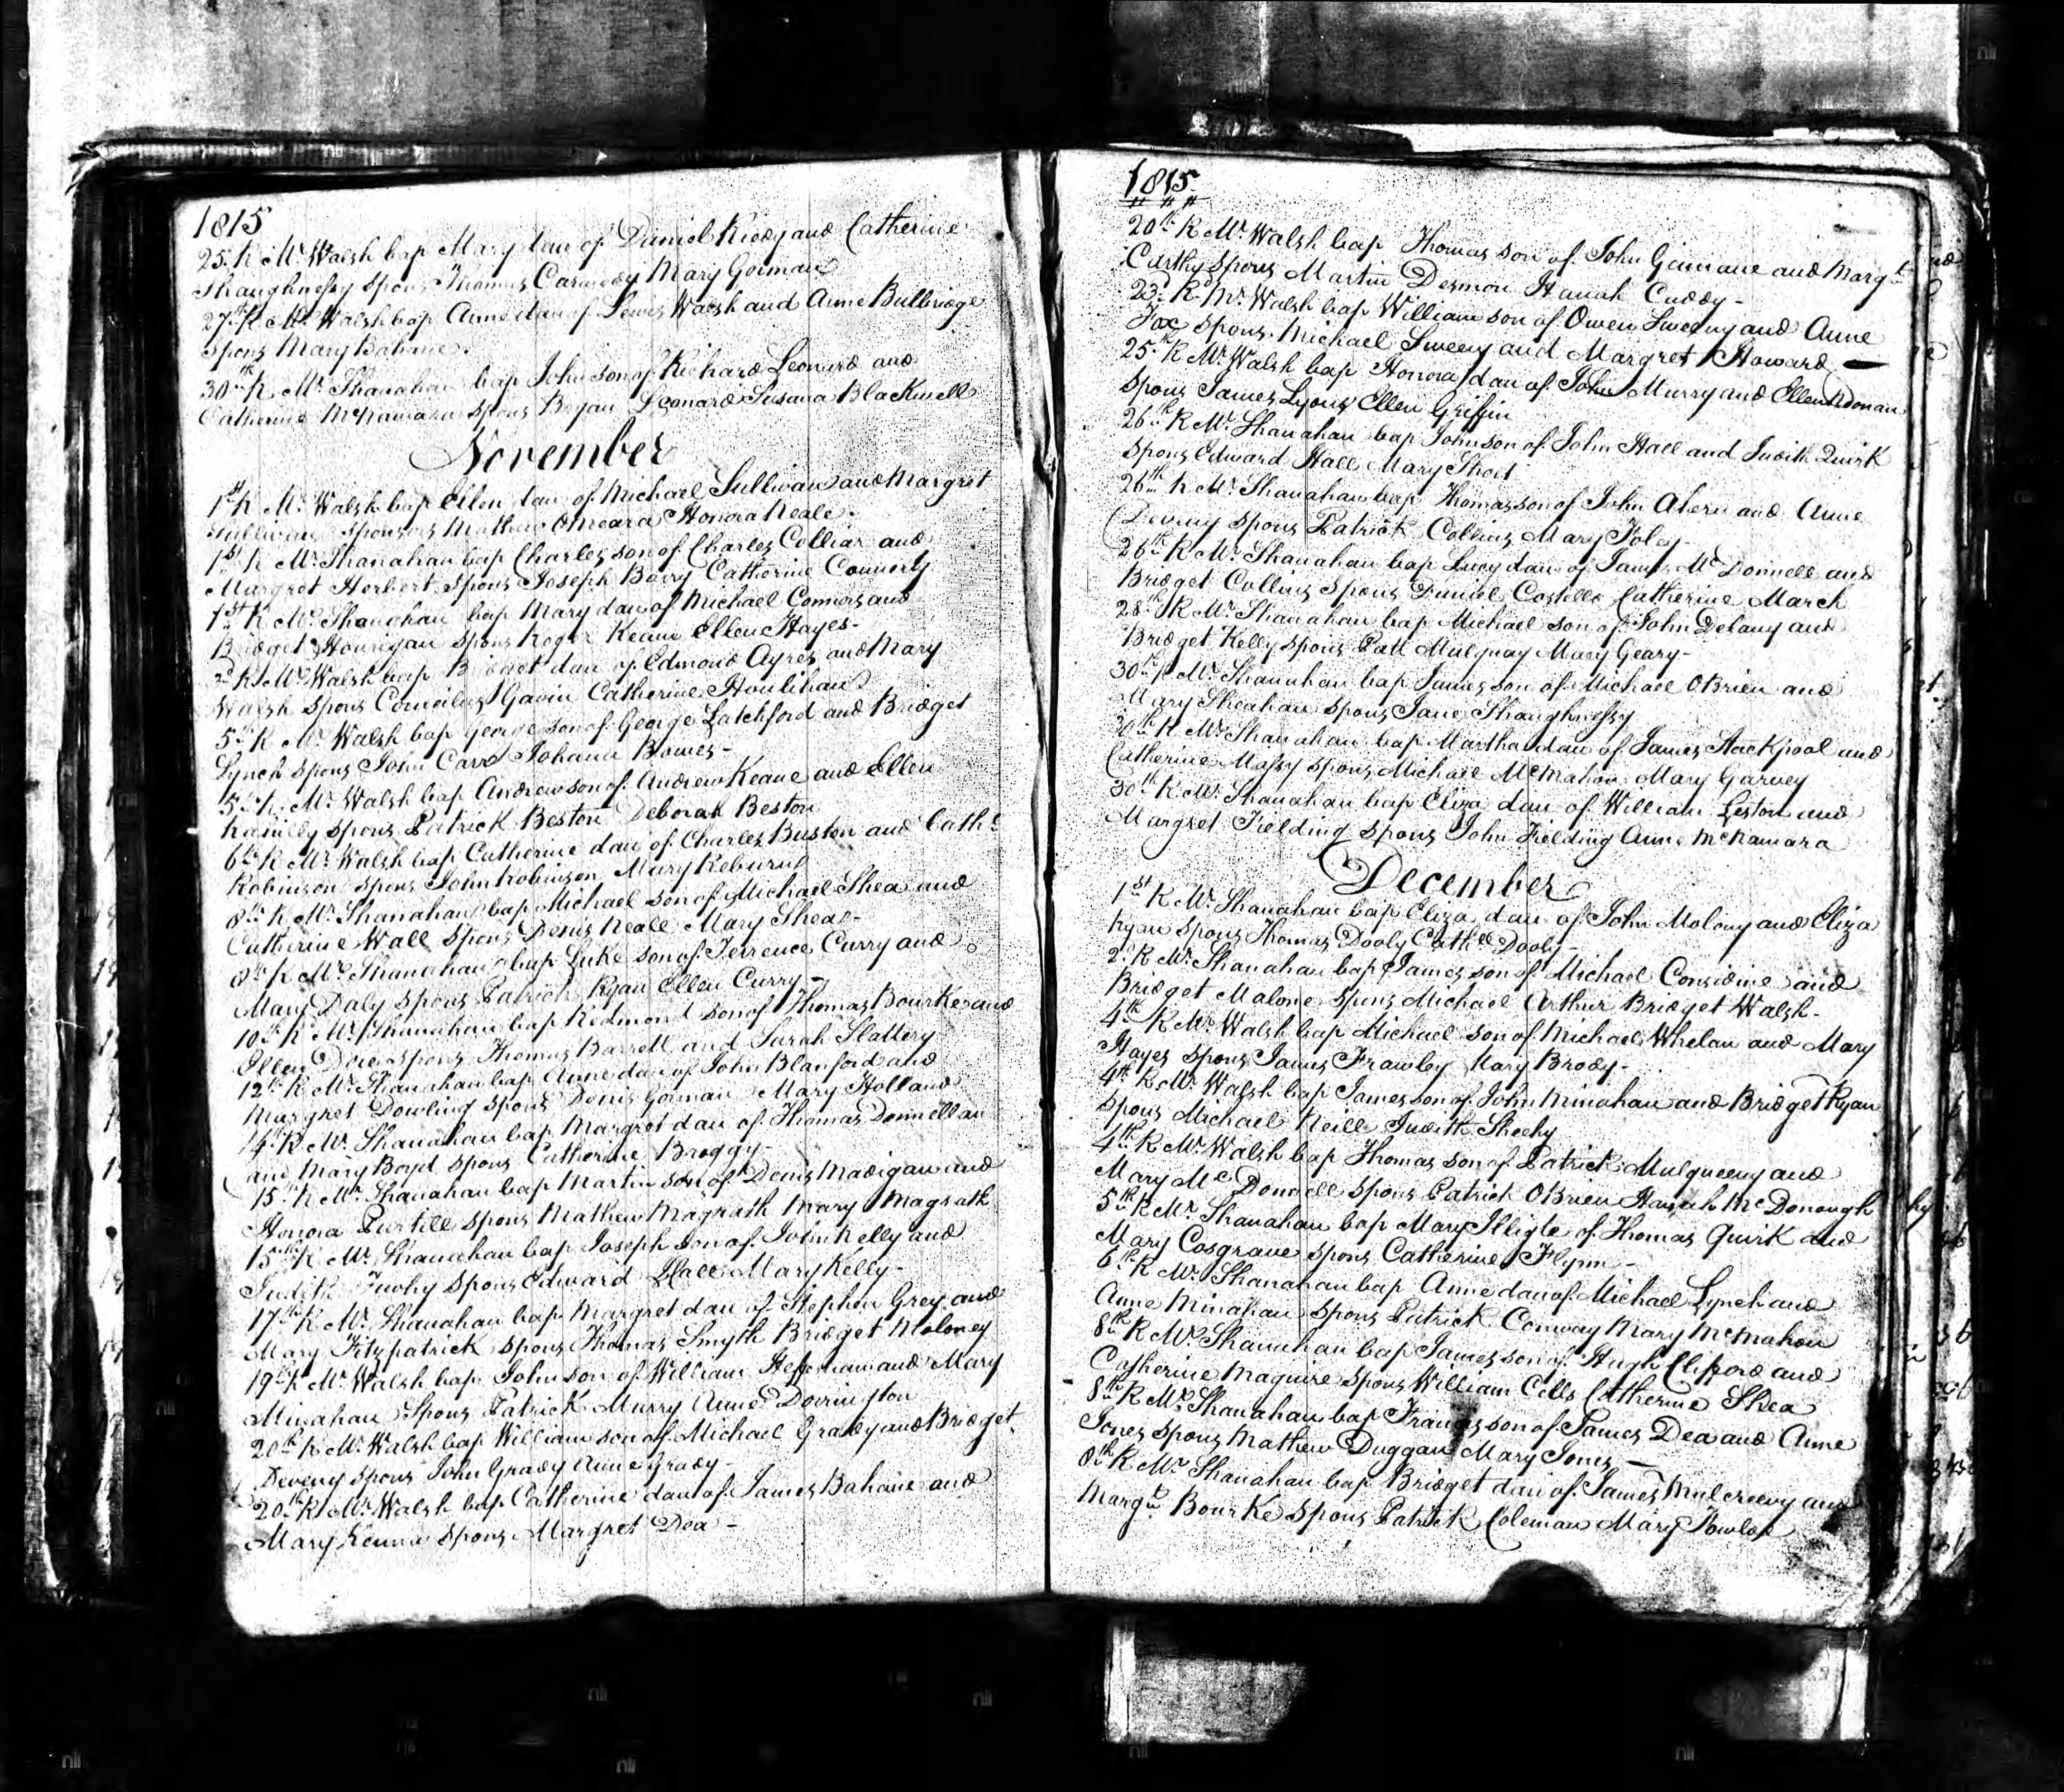 1815
25. R Mr. Walsh bap Mary dau of Daniel Reidy and Catherine
Shaughnessy spons Thomas Carmody Mary Gorman
27th R Mr. Walsh bap Anne dau of Lewis Walsh and Anne Bullbridge
spons Mary Bahane.
30th R Mr. Shanahan bap John son of Richard Leonard and
Catherine McNamara spons Bryan Leonard Susana Blackwell
November
1st R Mr. Walsh bap Ellen dau of Michael Sullivan and Margret
Sullivan Sponsors Mathew OMeara Honora Neale.
1st R Mr. Shanahan bap Charles son of Charles Colliar and
Margret Herbert spons Joseph Barry Catherine Connerly
1st R Mr. Shanahan bap Mary dau of Michael Connors and
Bridget Hourigan spons Roger Keane Ellen Hayes-
2d R Mr. Walsh bap Bridget dau of Edmond Ayres and Mary
Walsh spons Cornelius Gavin Catherine Houlihan
5th R Mr. Walsh bap George son of George Latchford and Bridget
Lynch spons John Carr Johana Bowes-
5th R. Mr. Walsh bap Andrew son of Andrew Keane and Ellen
spons Patrick Beston Deborah Beston
6th R Mr. Walsh bap Catherine dau of Charles Buston and Cathe
Robinson spons John Robinson Mary Reburn
8th R Mr. Shanahan bap Michael son of Michael Shea and
Catherine Wall spons Denis Neale Mary Shea-
8th R Mr. Shanahan bap Luke son of Terrence Curry and
Mary Daly spons Patrick Ryan Ellen Curry-
10th R Mr. Shanahan bap Redmond son of Thomas Bourke and
Ellen spons Thomas Barrett and Sarah Slattery
12th R Mr. Shanahan bap Anne dau of John Blanford and
Margret Dowling spons Denis Gorman Mary Holland
14th R Mr. Shanahan bap Margret dau of Thomas Donnellan
and Mary Boyd spons Catherine Broggy-
15th R Mr. Shanahan bap Martin son of Denis Madigan and
Honora Purtill spons Mathew Magrath Mary Magrath
15th R Mr. Shanahan bap Joseph son of John Kelly and
Judith Twohy spons Edward Hall Mary Kelly-
17th R Mr. Shanahan bap Margret dau of Stephen Grey and
Mary Fitzpatrick spons Thomas Smyth Bridget Moloney
19th R Mr. Walsh bap John son of William Heffernan and Mary
Minahan Spons Patrick Murry Anne Dorrington
20th R Mr. Walsh bap William son of Michael Grady and Bridget
Deveny spons John Grady Anne Grady-
20th R Mr. Walsh bap Catherine dau of James Bahane and
Mary Kenna spons Margret Dea-
1815
20th R Mr. Walsh bap Thomas son of John Ginnane and Margt
Carthy spons Martin Desmon Hanah Cuddy-
23d R. Mr. Walsh bap William son of Owen Sweeny and Anne
Fox spons. Michael Sweeny and Margret Howard
25th R Mr. Walsh bap Honora dau of John Murry and Ellen
spons James Lyons Ellen Griffin
26th R Mr. Shanahan bap John son of John Hall and Judith Quirk
spons Edward Hall Mary Short
26th R Mr. Shanahan bap Thomas son of John Ahern and Anne
Deveny spons Patrick Collins Mary Foley-
26th R Mr. Shanahan bap Lucy dau of James McDonnell and
Bridget Collins spons Daniel Costello Catherine March
28th R Mr. Shanahan bap Michael son of John Delany and
Bridget Kelly spons Patt Mulquay Mary Geary-
30th R Mr. Shanahan bap James son of Michael OBrien and
Mary Sheahan spons Jane Shaughnessy
30th R Mr. Shanahan bap Martha dau of James Stackpool and
Catherine Massy spons Michael McMahon Mary Garvey
30th R Mr. Shanahan bap Eliza dau of William Leston and
Margret Fielding spons John Fielding Anne McNamara
December
1st R Mr. Shanahan bap Eliza dau of John Molony and Eliza
Ryan spons Thomas Dooly Cathne Dooly-
2d R Mr. Shanahan bap James son of Michael Considine and
Bridget Malone spons Michael Arthur Bridget Walsh-
4th R Mr. Walsh bap Michael son of Michael Whelan and Mary
Hayes spons James Frawley Mary Brody-
4th R Mr. Walsh bap James son of John Minahan and Bridget Ryan
spons Michael Neill Judith Sheehy
4th R Mr. Walsh bap Thomas son of Patrick Mulqueeny and
Mary McDonnell spons Patrick OBrien Hanah McDonough
5th R Mr. Shanahan bap Mary Illigte of Thomas Quirk and
Mary Cosgrave spons Catherine Flynn-
6th R Mr. Shanahan bap Anne dau of Michael Lynch and
Anne Minahan spons Patrick Conway Mary McMahon
8th R Mr. Shanahan bap James son of Hugh Clifford and
Catherine Maguire spons William Cells Catherine Shea
8th R Mr. Shanahan bap Francis son of James Dea and Anne
Jones spons Mathew Duggan Mary Jones-
8th R Mr. Shanahan bap Bridget dau of James Mulcreevy and
Margt Bourke spons Patrick Coleman Mary